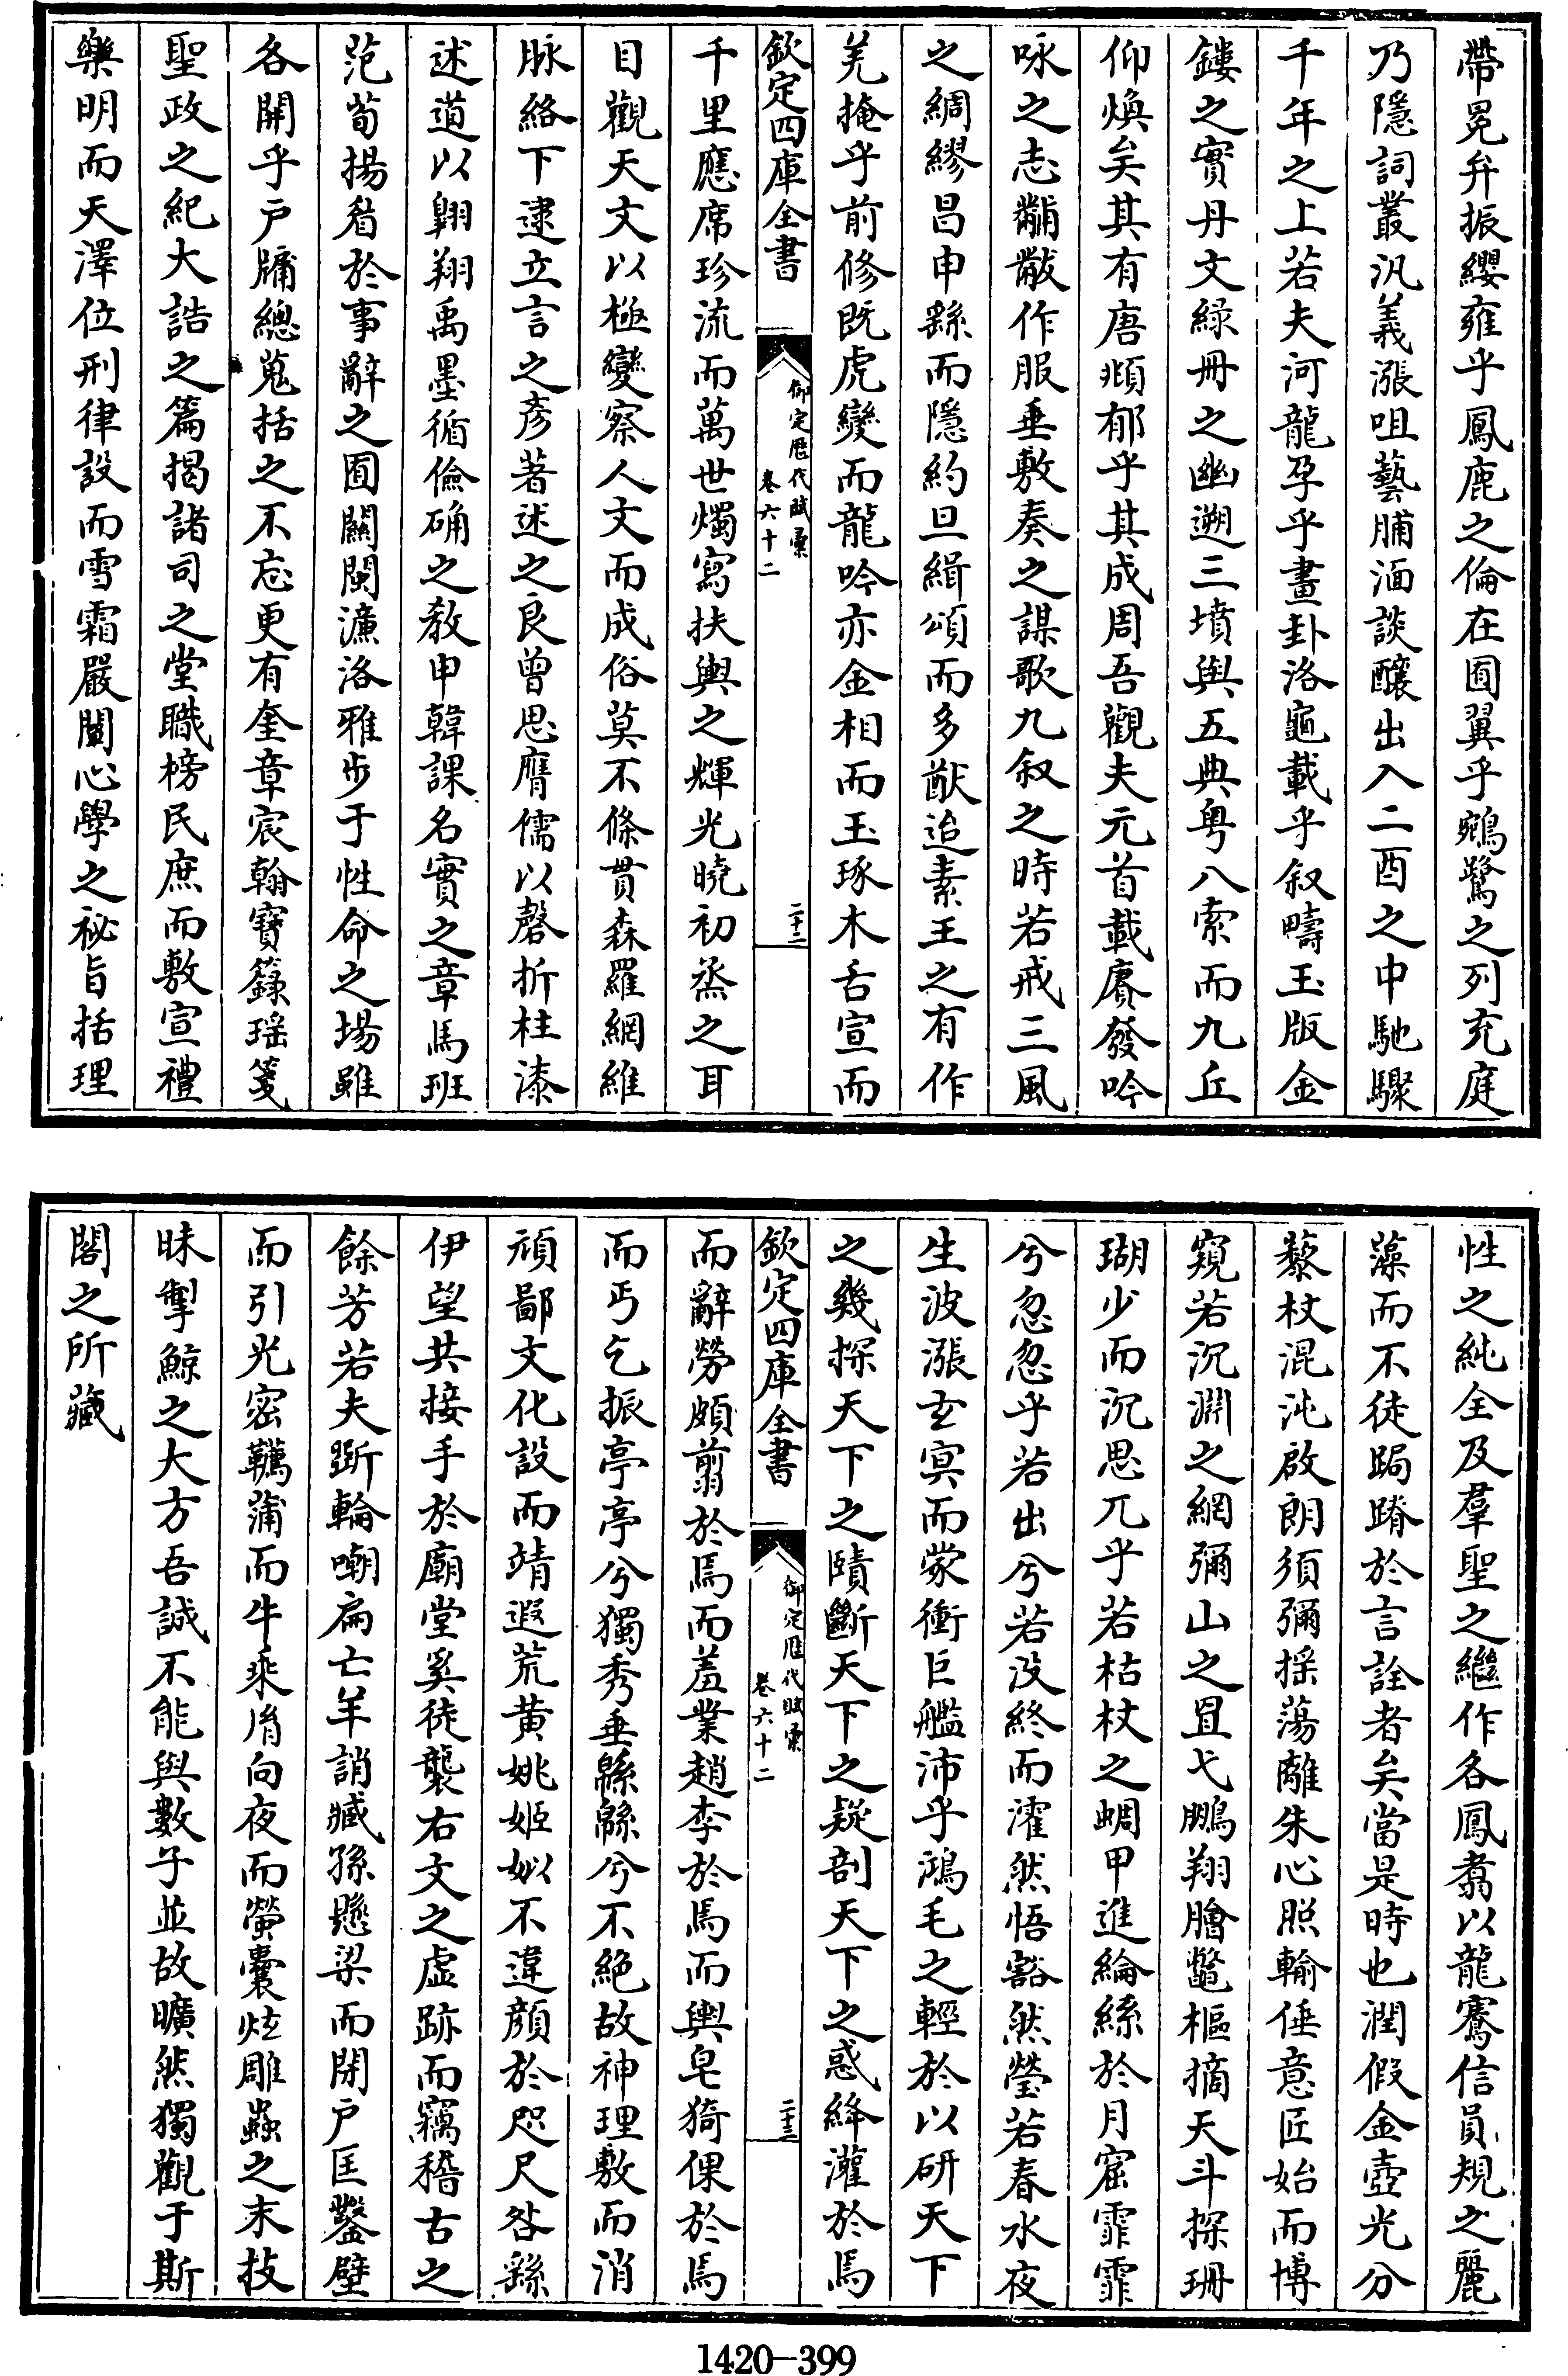 帶冕弁振纓雍乎鳳鹿之倫在囿翼乎鵷鷺之列充庭
乃隱詞叢汎義漲咀藝脯湎談釀出入二酉之中馳驟
千年之上若夫河龍孕乎畫卦洛龜載乎叙疇玉版金
鏤之實丹文綠冊之幽遡三墳與五典粤八索而九丘
仰煥矣其有唐頫郁乎其成周吾觀夫元首載賡發吟
咏之志黼黻作服垂敷奏之謀歌九叙之時若戒三風
之綢繆昌申繇而隱約旦緝頌而多猷迨素王之有作
羌掩乎前修既虎變而龍吟亦金相而玉琢木舌宣而
欽定四庫全書
御定歷代賦彙
卷六十二
二十二
千里應席珍流而萬世燭寫扶輿之輝光曉初烝之耳
目觀天文以極變察人文而成俗莫不條貫森羅網維
脉絡下逮立言之彥著述之良曾思膺儒以磬折柱漆
述道以翺翔禹墨循儉确之教申韓課名實之章馬班
范荀揚㸔於事辭之囿關閩濂洛雅步于性命之場雖
各開乎户牖總蒐括之不忘更有奎章宸翰寶籙瑶箋
聖政之紀大誥之篇揭諸司之堂職榜民庶而敷宣禮
樂明而天澤位刑律設而雪霜嚴闡心學之祕旨括理
性之純全及羣聖之繼作各鳳翥以龍騫信員規之麗
藻而不徒跼蹐於言詮者矣當是時也潤假金壺光分
藜杖混沌啟朗須彌揺蕩離朱心照輸倕意匠始而博
窺若沉淵之網彌山之罝弋鵬翔膾鼈樞摘天斗探珊
瑚少而沉思兀乎若枯杖之蜩甲進綸絲於月窟霏霏
兮忽忽乎若出兮若没終而濯然悟豁然瑩若春水夜
生波漲玄㝠而䝉衝巨艦沛乎鴻毛之輕於以研天下
之幾探天下之賾斷天下之疑剖天下之惑絳灌於焉
欽定四庫全書
御定歷代賦彙
卷六十二
二十三
而辭勞頗翦於焉而羞業趙李於焉而輿皂猗倮於焉
而丐乞振亭亭兮獨秀垂緜緜兮不絶故神理敷而消
頑鄙文化設而靖遐荒黄姚姬姒不違顔於咫尺咎繇
伊望共接手於廟堂奚徒襲右文之虚跡而竊稽古之
餘芳若夫斲輪嘲扁亡羊誚臧孫懸梁而閉户匡鑿壁
而引光密韉蒲而牛乘胤向夜而螢囊炫雕蟲之末技
昧掣鯨之大方吾誠不能與數子並故曠然獨觀于斯
閣之所藏
1420-399